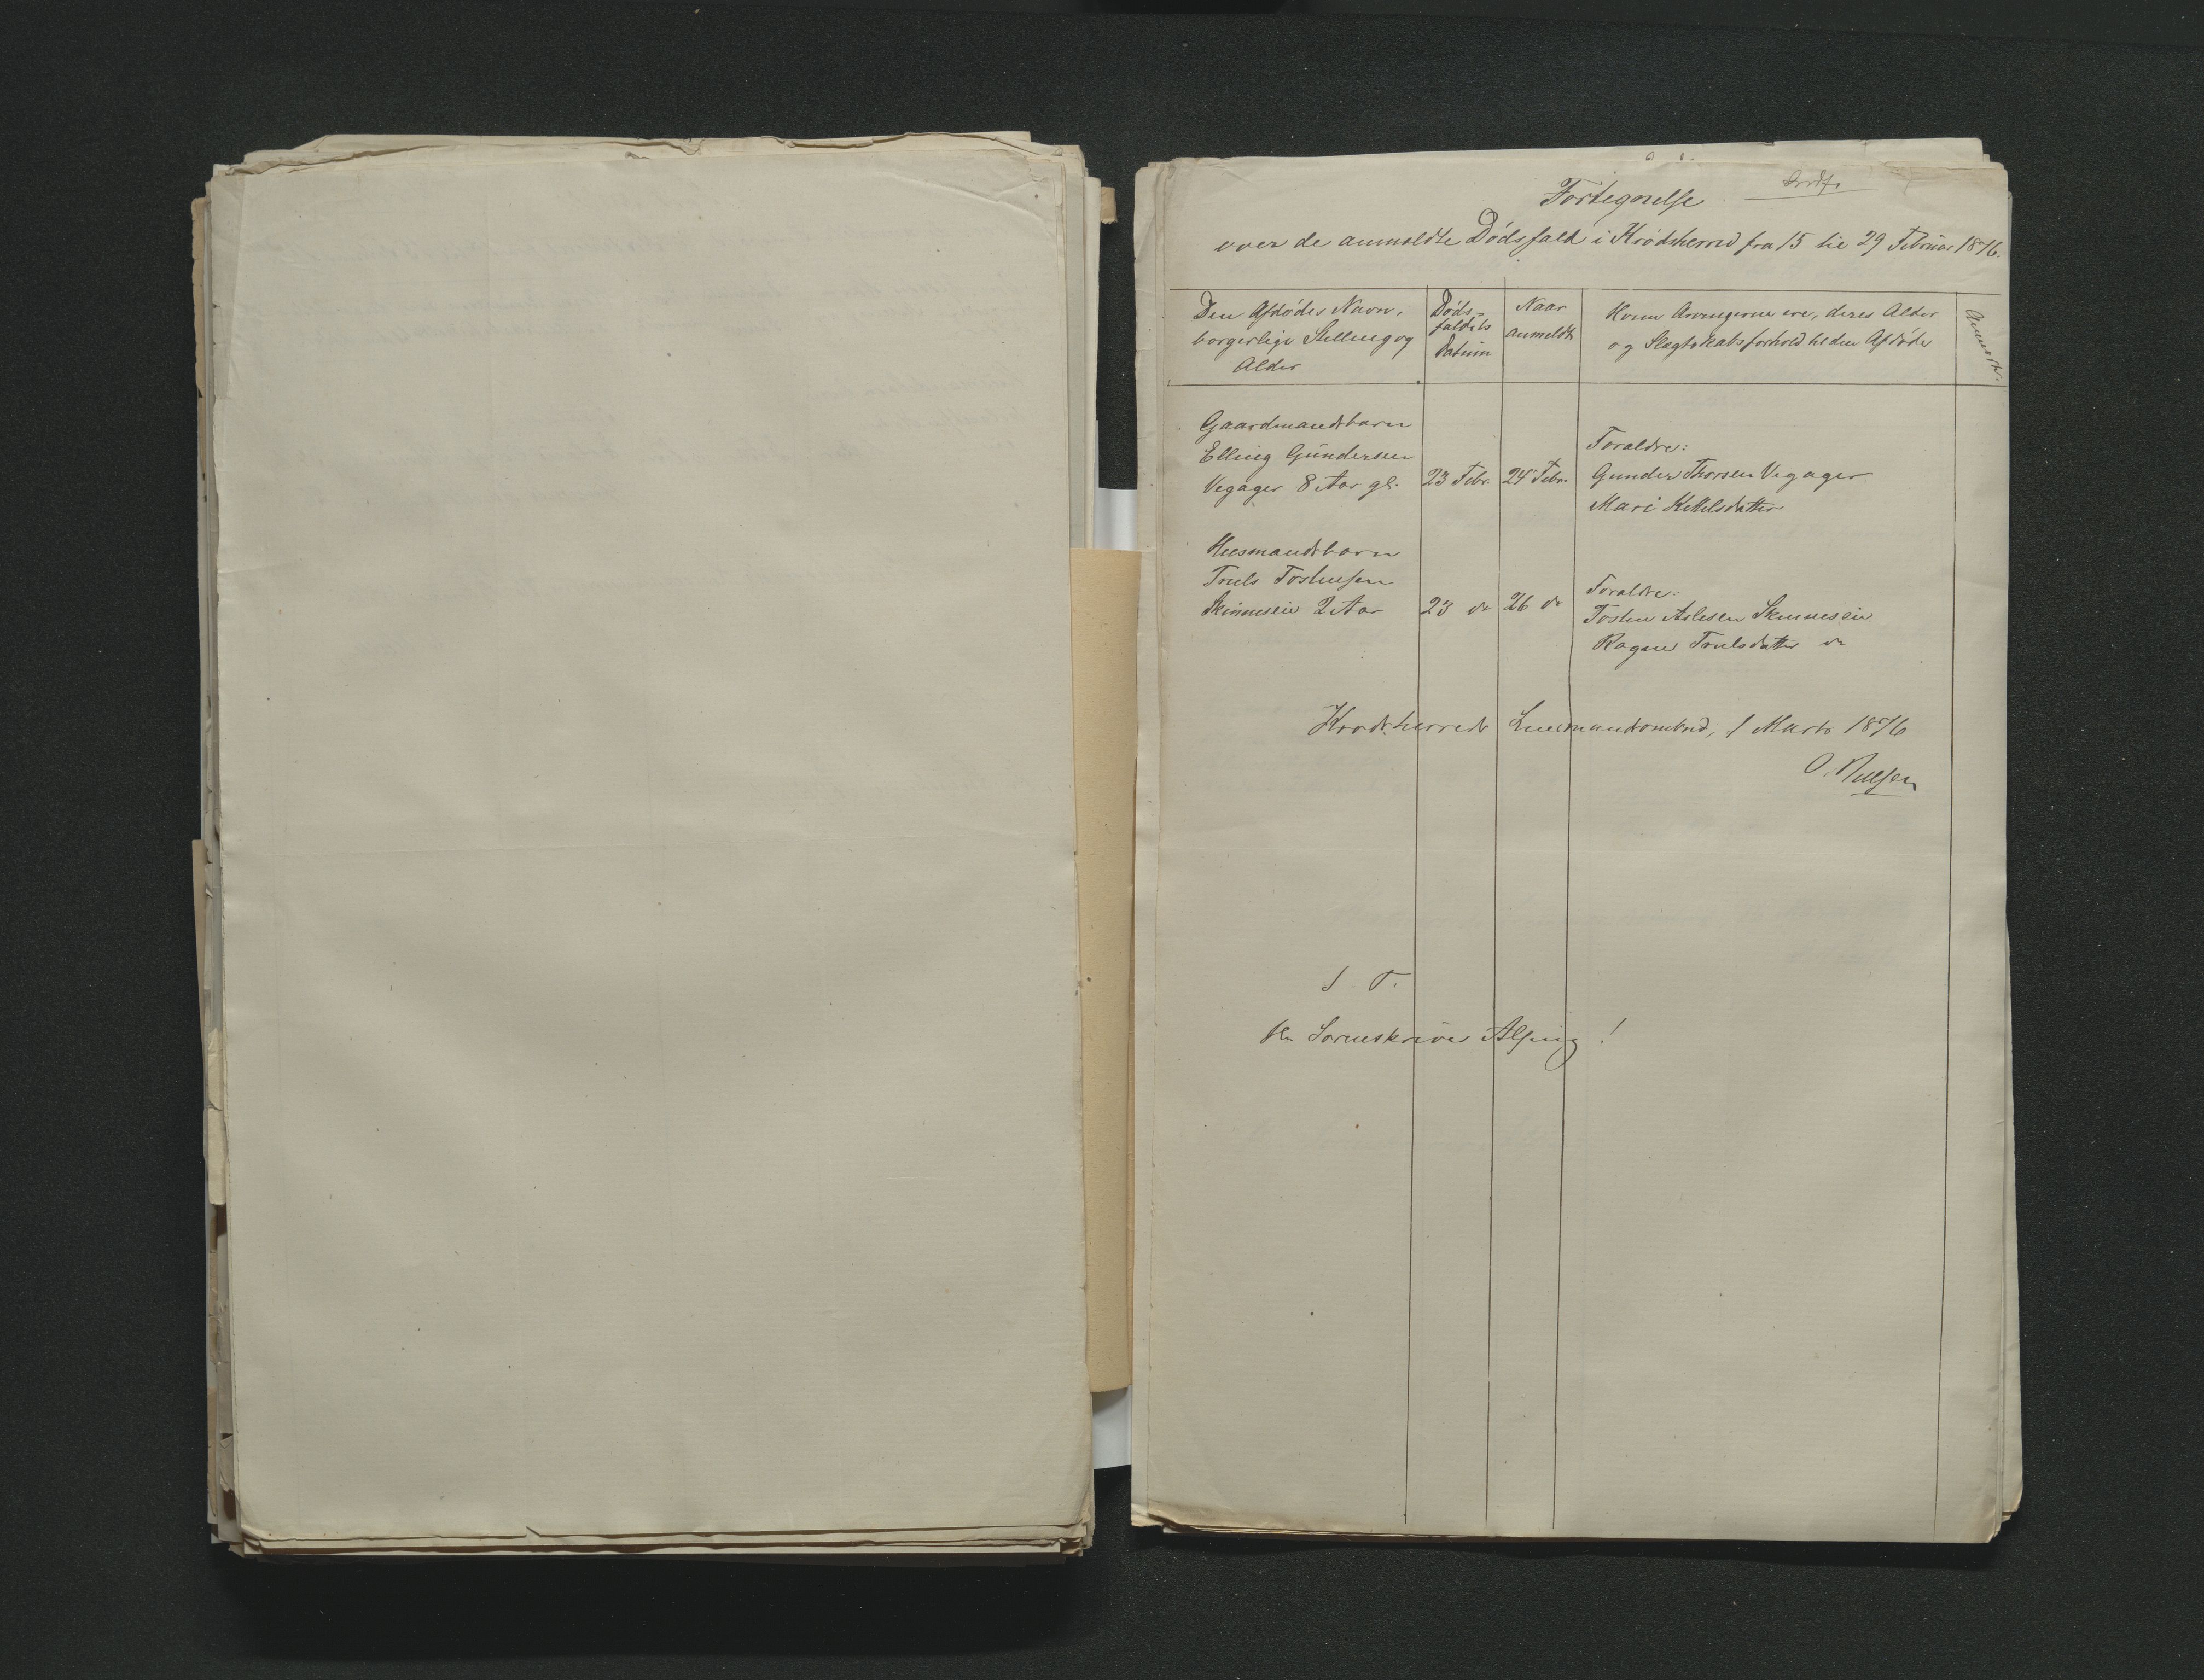 Fortegnelse
over de anmeldte Dødsfald i Krødsherred fra 15 til 29 Februar 1876.
Den Afdødes Navn,
borgerlige Stilling og
Alder
Døds-
faldets
Datum
Naar
anmeldt
Hvem Arvingerne ere, deres Alder
og Slægtskabsforhold til den Afdøde
Anmærk.
Gaardmandsbarn
Elling Gundersen
Vegager 8 Aar gl.
23 Febr.
24 Febr.
Forældre:
Gunder Thorsen Vegager
Mari Kittelsdatter
Husmandsbarn
Truls Tostensen
Skinneseie 2 Aar
23 do
26 do
Forældre:
Tosten Aslesen Skinneseie
Ragne Trulsdatter do
Krødsherreds Lensmandsombud, 1 Marts 1876
O. Nielsen
S. T.
Hr Sorenskriver